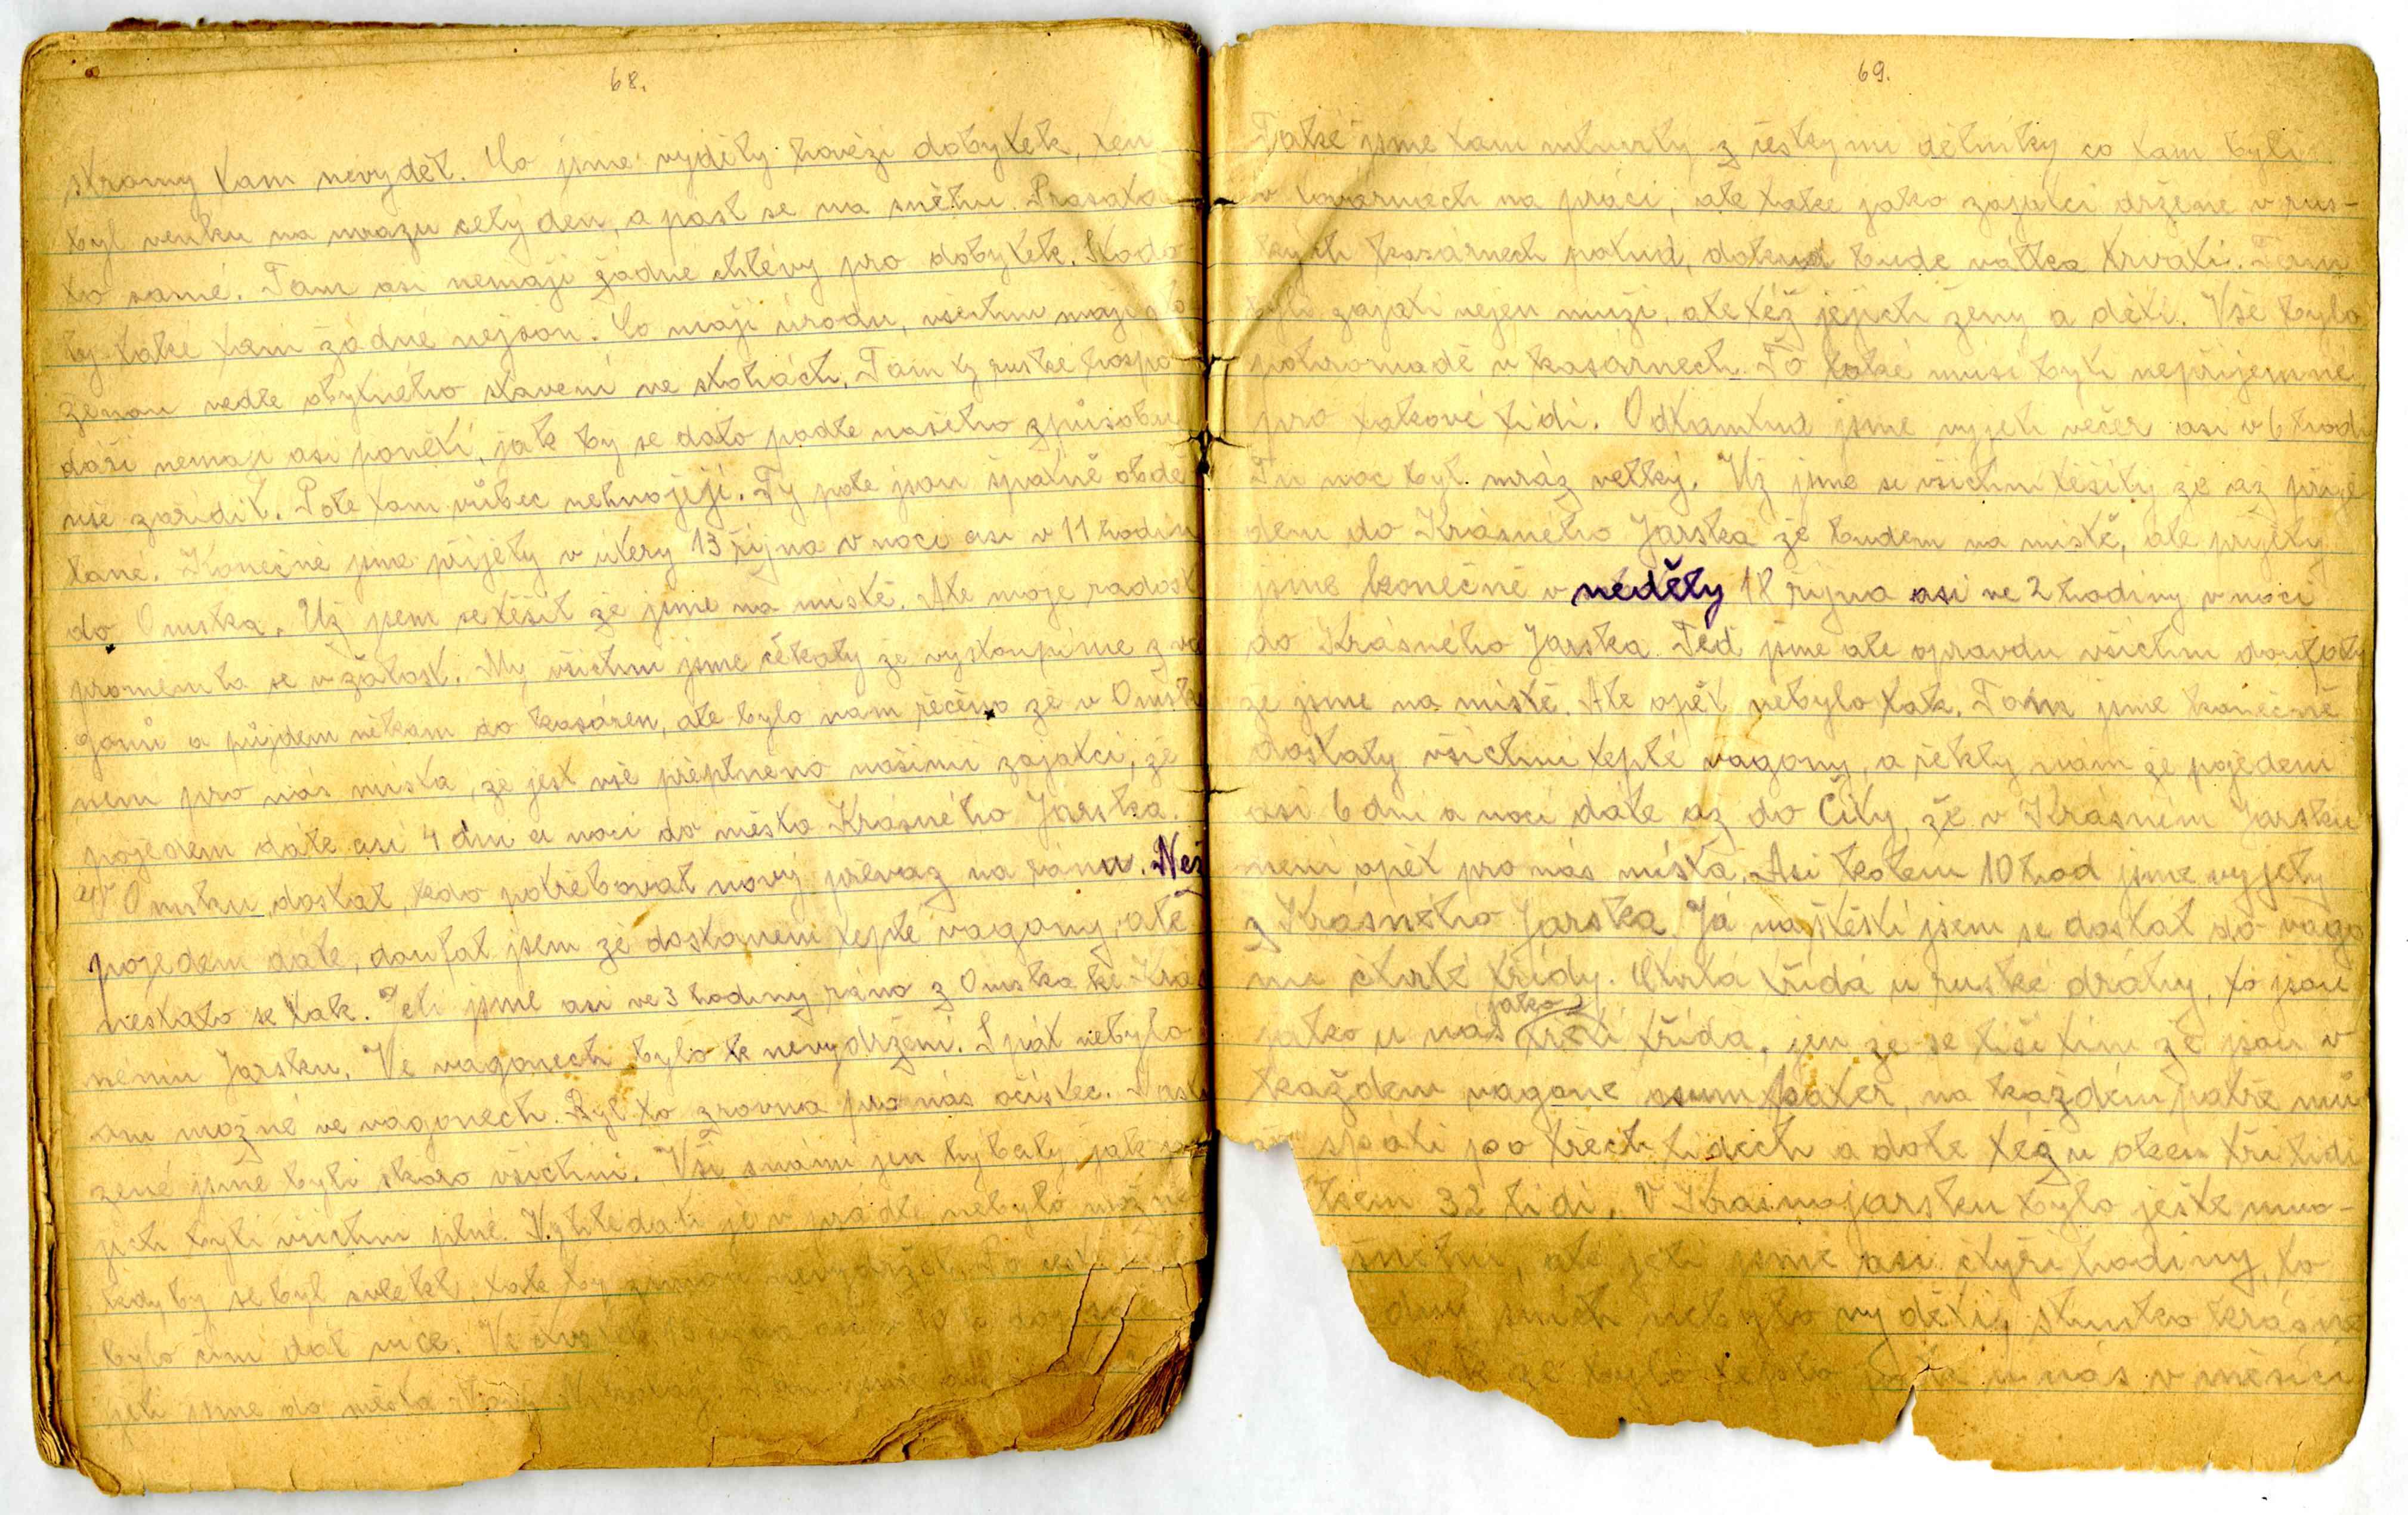 68.
stromy tam nevydět. Co jsme vyděly hovězi dobytek, ten
byl venku na mrazu celý den, a pasl se na sněhu. Prasata
to samé. Tam asi nemaji žádne chlévy pro dobytek. Stodo-
ly také tam žádné nejsou. Co maji úrodu, všichni maji slo
ženou vedle obytného staveni ve stohách. Tam ty ruské hospo
dáři nemaji asi poněti, jak by se dalo podle našeho způsobu
vše zařídit. Pole tam vůbec nehnojejí. Ty pole jsou špatně obdě
lané. Konečně jsme přijely v úterý 13 řijna v noci asi v 11 hodin
do Omska. Už jsem se těšil že jsme na místě. Ale moje radost
proměnila se v žalost. My všichni jsme čekaly že vystoupíme z va
gonů a půjdem někam do kasáren, ale bylo nám řečeno že v Omsku
neni pro nás mista, že jest vše přeplněno našimi zajatci, že
pojedem dále asi 4 dni a noci do města Krásného Jarska.
V Omsku dostal, kdo potřeboval nový převaz na ránu. Než
pojedem dále, doufal jsem že dostanem teplé vagony, ale
nestalo se tak. Jeli jsme asi ve 3 hodiny ráno z Omska ke Krás
nemu Jarsku. Ve vagonech bylo k nevydrženi. Spát nebylo
ani možné ve vagonech. Byl to zrovna pro nás očistec.
zené jsme byli skoro všichni. Vši snámi jen hýbaly, jak
jich byli všichni plné. Vyhledati je v prádle nebylo možné
kdyby se byl svlékl, tak by zimou nevydržel. Po cestě
bylo čim dál více. Ve
jeli jsme do města
69.
Také jsme tam mluvily z českymi dělníky co tam byli
v továrnach na práci, ale take jako zajatci držene v rus-
kých kasárnech potud, dokud bude válka trvati. Tam
byli zajati nejen muži, ale též jejich ženy a děti. Vše bylo
pohromadě v kasárnech. To také musi byti nepřijemné
pro takové lidi. Odtamtud jsme vyjeli večer asi v 6 hodi
Tu noc byl mráz velký. Už jsme se všichni těšily že až přije
dem do Krásného Jarska že budem na mistě, ale přijely
jsme konečně v neděly 18 řijna asi ve 2 hodiny v noci
do Krásného Jarska. Ted jsme ale opravdu všichni doufaly
že jsme na mistě. Ale opět nebylo tak. Tam jsme konečně
dostaly všichni teplé vagony, a řekly nám že pojedem
asi 6 dni a noci dále až do Čity, že v Krásném Jarsku
neni opět pro nás mista. Asi kolem 10 hod jsme vyjely
z Krásného Jarska. Já naštěsti jsem se dostal do vago
nu čtvrté třídy. Čtvrtá třída u ruské dráhy, to jsou
jako u nas jako třetí třída, jen že se liší tim že jsou v
každem vagone osum pater, na každém patře mů
spáti po třech lidech a dole též u oken tři lidi
všem 32 lidi. V Krasnojarsku bylo ještě mno-
sněhu, ale jeli jsme asi čtyři hodiny, to
snich nebylo vyděti, slunko krásně
tak že bylo teplo jak u nás v měsici